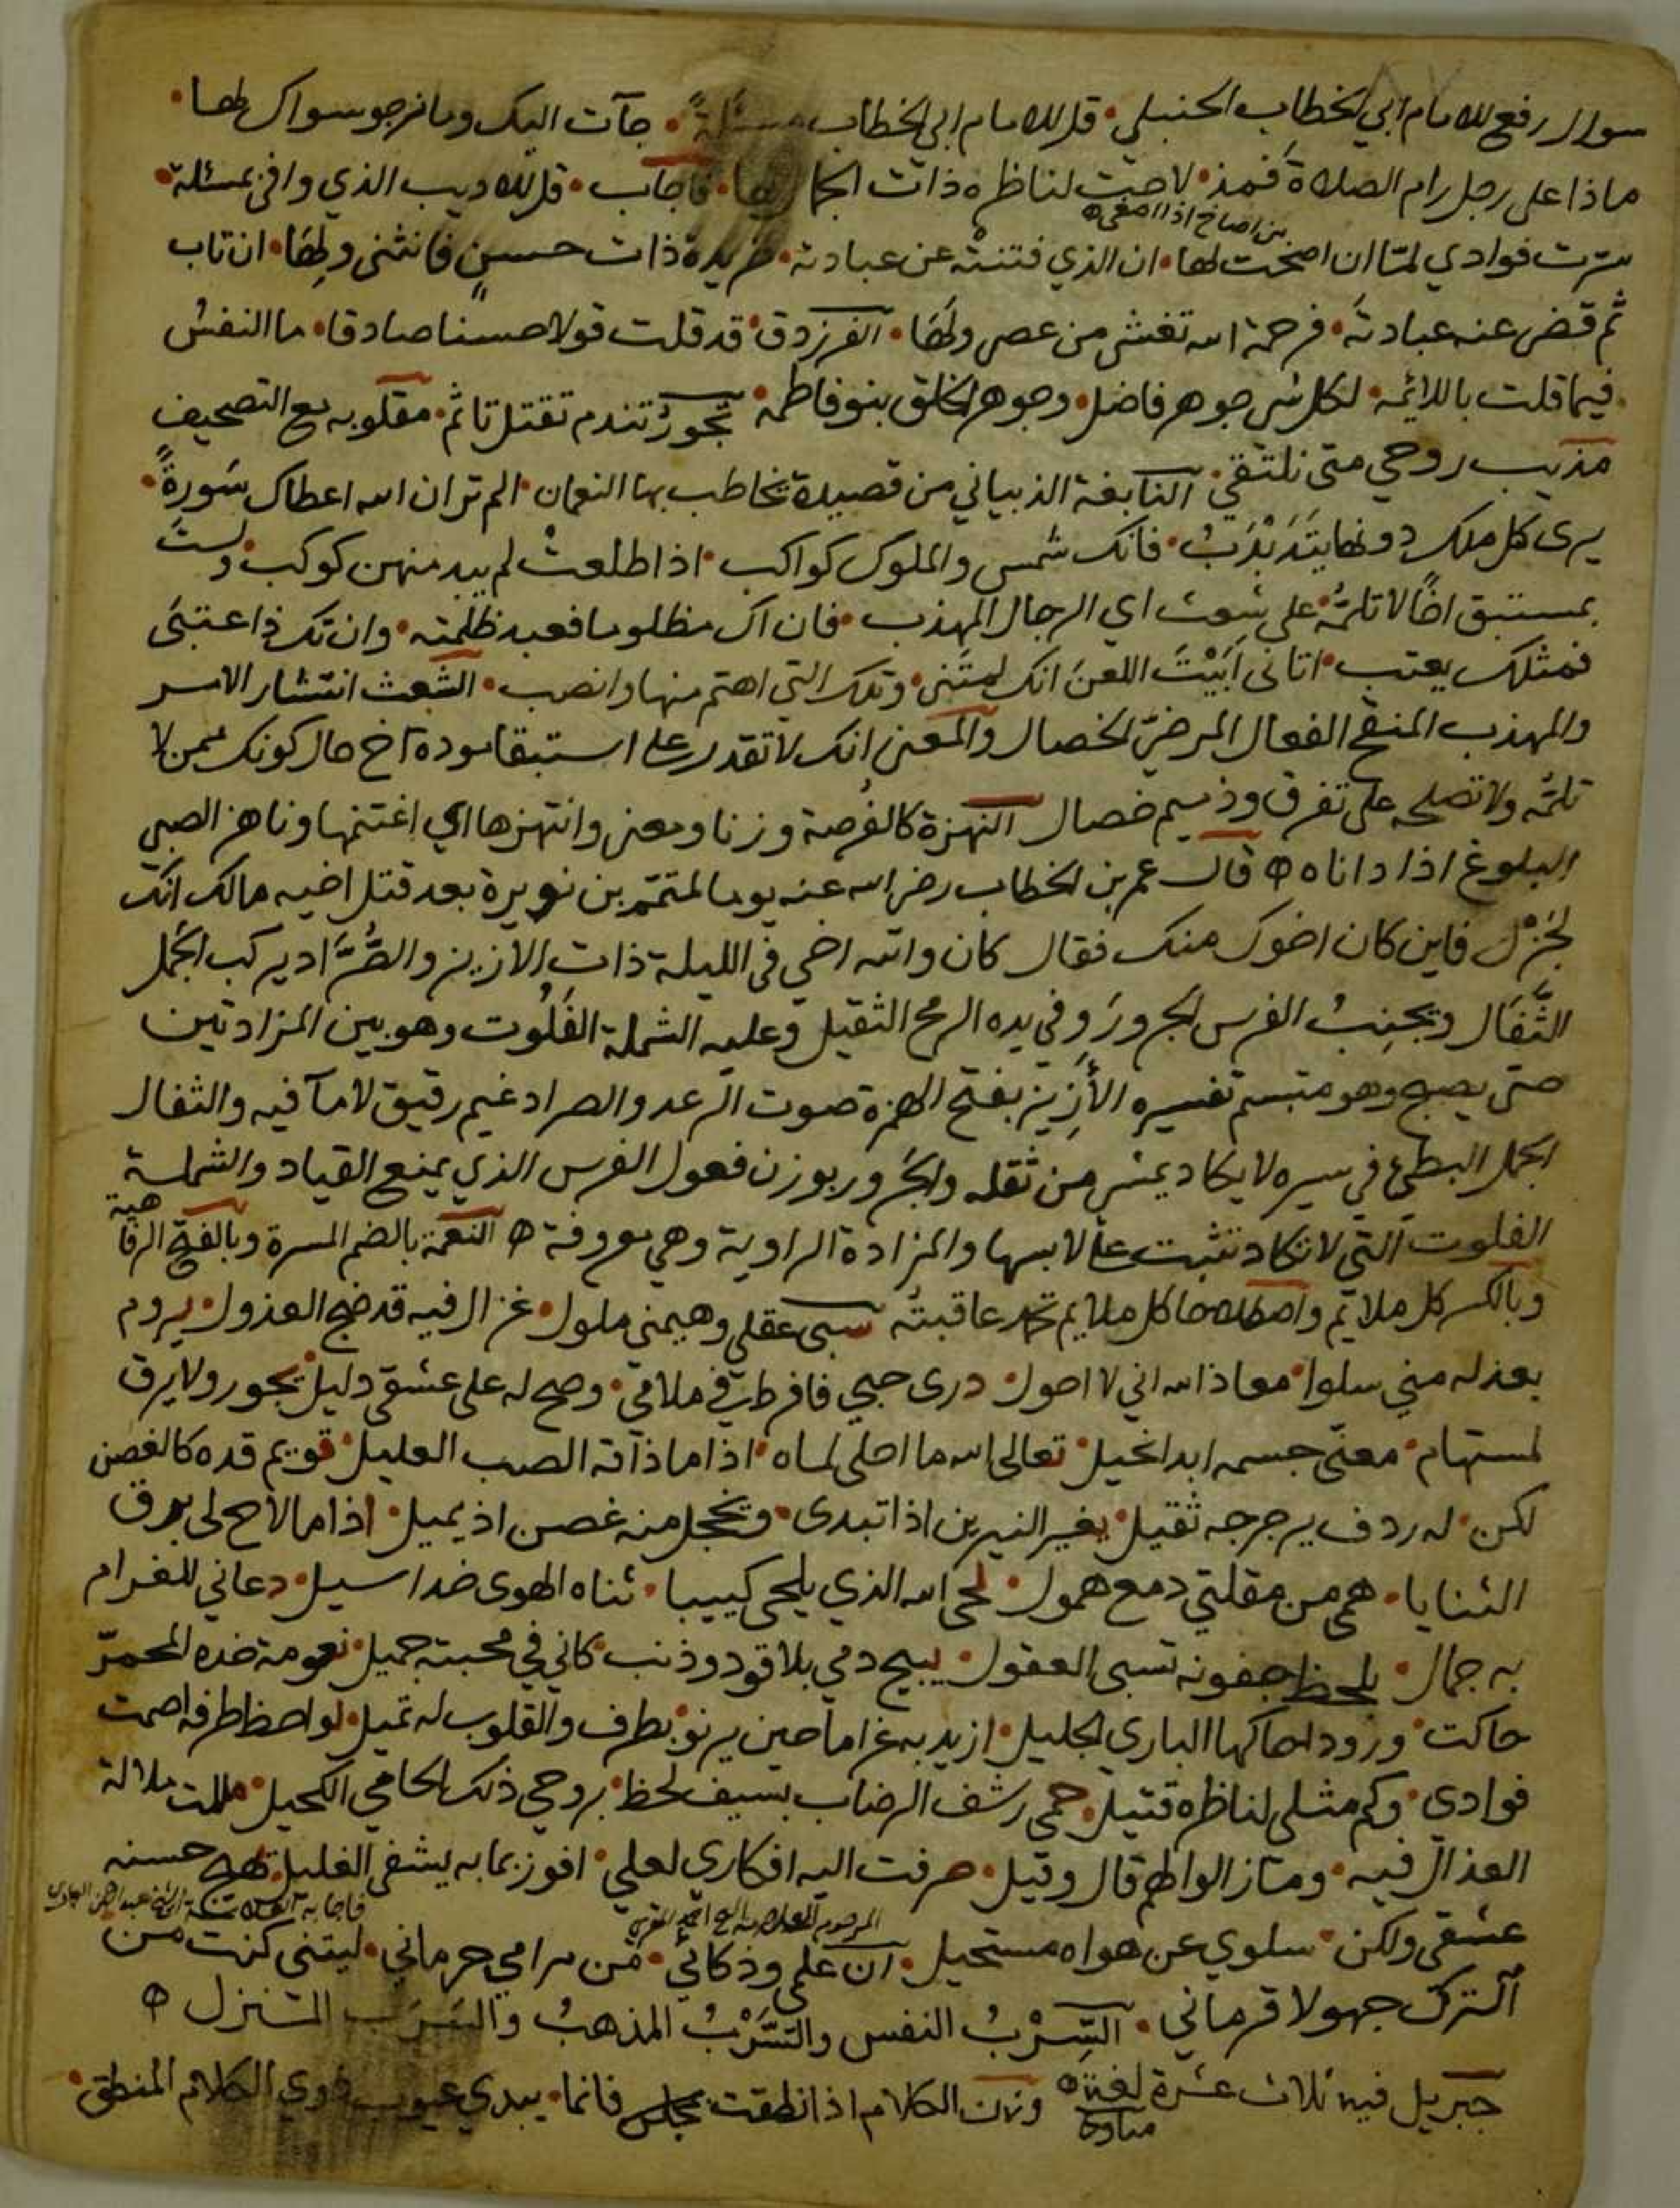 سوال رفع للامام ابي الخطاب الحنبلي • قل للامام ابي الخطاب مسئلةً • جآت اليك وما نرجو سواك لها •
ماذا على رجل رام الصلاة فمذ • لاحت لناظره ذات الجمال لها • فاجاب • قل للاديب الذي وافى بمسئلة •
من اصاخ اذا اصغى ه
سرت فوادي لمتا ان اصخت لها • ان الذي فتنته عن عبادته • خريدة ذات حسن فانثنى ولها • ان تاب
ثم قضى عنه عبادته • فرحمة الله تغشى من عصى ولها • الفرزدق • قد قلت قولا حسنا صادقا • ما النفس
فيما قلت باللائمه • لكل شي جوهر فاضل • وجوهر الخلق بنو فاطمه • تجور تندم تقتل تاثم • مقلوبه مع التصحيف
مذيب روحي متى نلتقي • النابغة الذبياني من قصيدة يخاطب بها النعمان • الم تر ان الله اعطاك سَورةً •
يرى كل ملك دونها يَتَذَبْذَبُ • فانك شمس والملوك كواكب • اذا طلعتْ لم يبد منهن كوكب • ولستَ
بمستبق اخًا لا تلمُّه • على شعث اي الرجال المهذب • فان اك مظلوما فعبد ظلمته • وان تك ذا عتبى
فمثلك يعتب • اتانى اَبَيْتَ اللعنَ انك لمتَنى • وتلك التي اهتم منها وانصب • الشعث انتشار الامر
والمهذب المنقح الفعال المرضيّ الخصال والمعنى انك لا تقدر على استبقا مودة اخ حال كونك ممن لا
تلمُّه ولا تصلحه على تفرق وذميم خصال النهزة كالفُرصة وزنا ومعنى وانتهزها اي اغتنمها وناهز الصبي
البلوغ اذا داناه ه قال عمر بن الخطاب رضى الله عنه يوما لمتمّم بن نويرة بعد قتل اخيه مالك انك
لجَزْل فاين كان اخوك منك فقال كان والله اخي فى الليلة ذات الازيز والصُّرَّاد يركب الجمل
الثَّفَال ويجنِبُ الفرس الجرورَ وفي يده الرمح الثقيل وعليه الشملة الفَلُوت وهو بين المزادتين
حتى يصبح وهو متبسم تفسيره الأَزِيز بفتح الهمزة صوت الرعد والصراد غيم رقيق لا مآ فيه والثفال
الجمل البطي في سيره لا يكاد يمشى من ثقله والجرور بوزن فعول الفرس الذي يمنع القياد والشملة
الفلوت التي لا تكاد تثبت على لابسها والمزادة الراوية وهي معروفة ه النعمة بالضم المسرة وبالفتح الرفاهية
وبالكسر كل ملايم واصطلاحا كل ملايم تحمد عاقبتُه سبى عقلي وهيمني ملول • غزال فيه قد ضج العذول • يروم
بعذله مني سلوا • معاذ الله اني لا احول • درى حبي فافرط في ملامي • وصح له على عشقى دليل • يجور ولا يرق
لمستهام • معنّى جسمه ابدا نحيل • تعالى الله ما احلى لماه • اذا ما ذاقه الصب العليل • قويم قده كالغصن
لكن • له ردف يرجرجه ثقيل • يغير النيرين اذا تبدى • ويخجل منه غصن اذ يميل • اذا ما لاح لى برق
الثنايا • همى من مقلتي دمع همول • لحى الله الذي يلحى كييبا • ثناه الهوى خد اسيل • دعاني للغرام
به جمال • بلحظ جفونه تسبى العقول • يبيح دمي بلا قود وذنب • كاني في محبته جميل • نعومة خده المحمرّ
حاكت • ورودا حاكها الباري الجليل • ازيد به غراما حين يرنو • بطرف والقلوب له تميل • لواحظ طرفه اصمت
فوادي • وكم مثلى لناظره قتيل • حمى رشف الرضاب بسيف لحظ • بروحي ذلك الحامي الكحيل • مللت ملالة
العذال فيه • وما زالوا لهم قال وقيل • صرفت اليه افكاري لعلي • افوز بما به يشفى الغليل • حسنه
المرحوم العلامه الشيخ
فاجابه عبد الرحمن العمادى
عشقى ولكن • سلوي عن هواه مستحيل • ان علمي وذكائي • من مرامي حرماني • ليتنى كنت من
الترك جهولا قرماني • السِّرْبُ النفس والسَّرْبُ المذهبُ والسَرَب المنزل ه
جبريل فيه ثلاث عشرة لغة ه وزن الكلام اذا نطقت بمجلس فانما • يبدي عيوب ذوي الكلام المنطق •